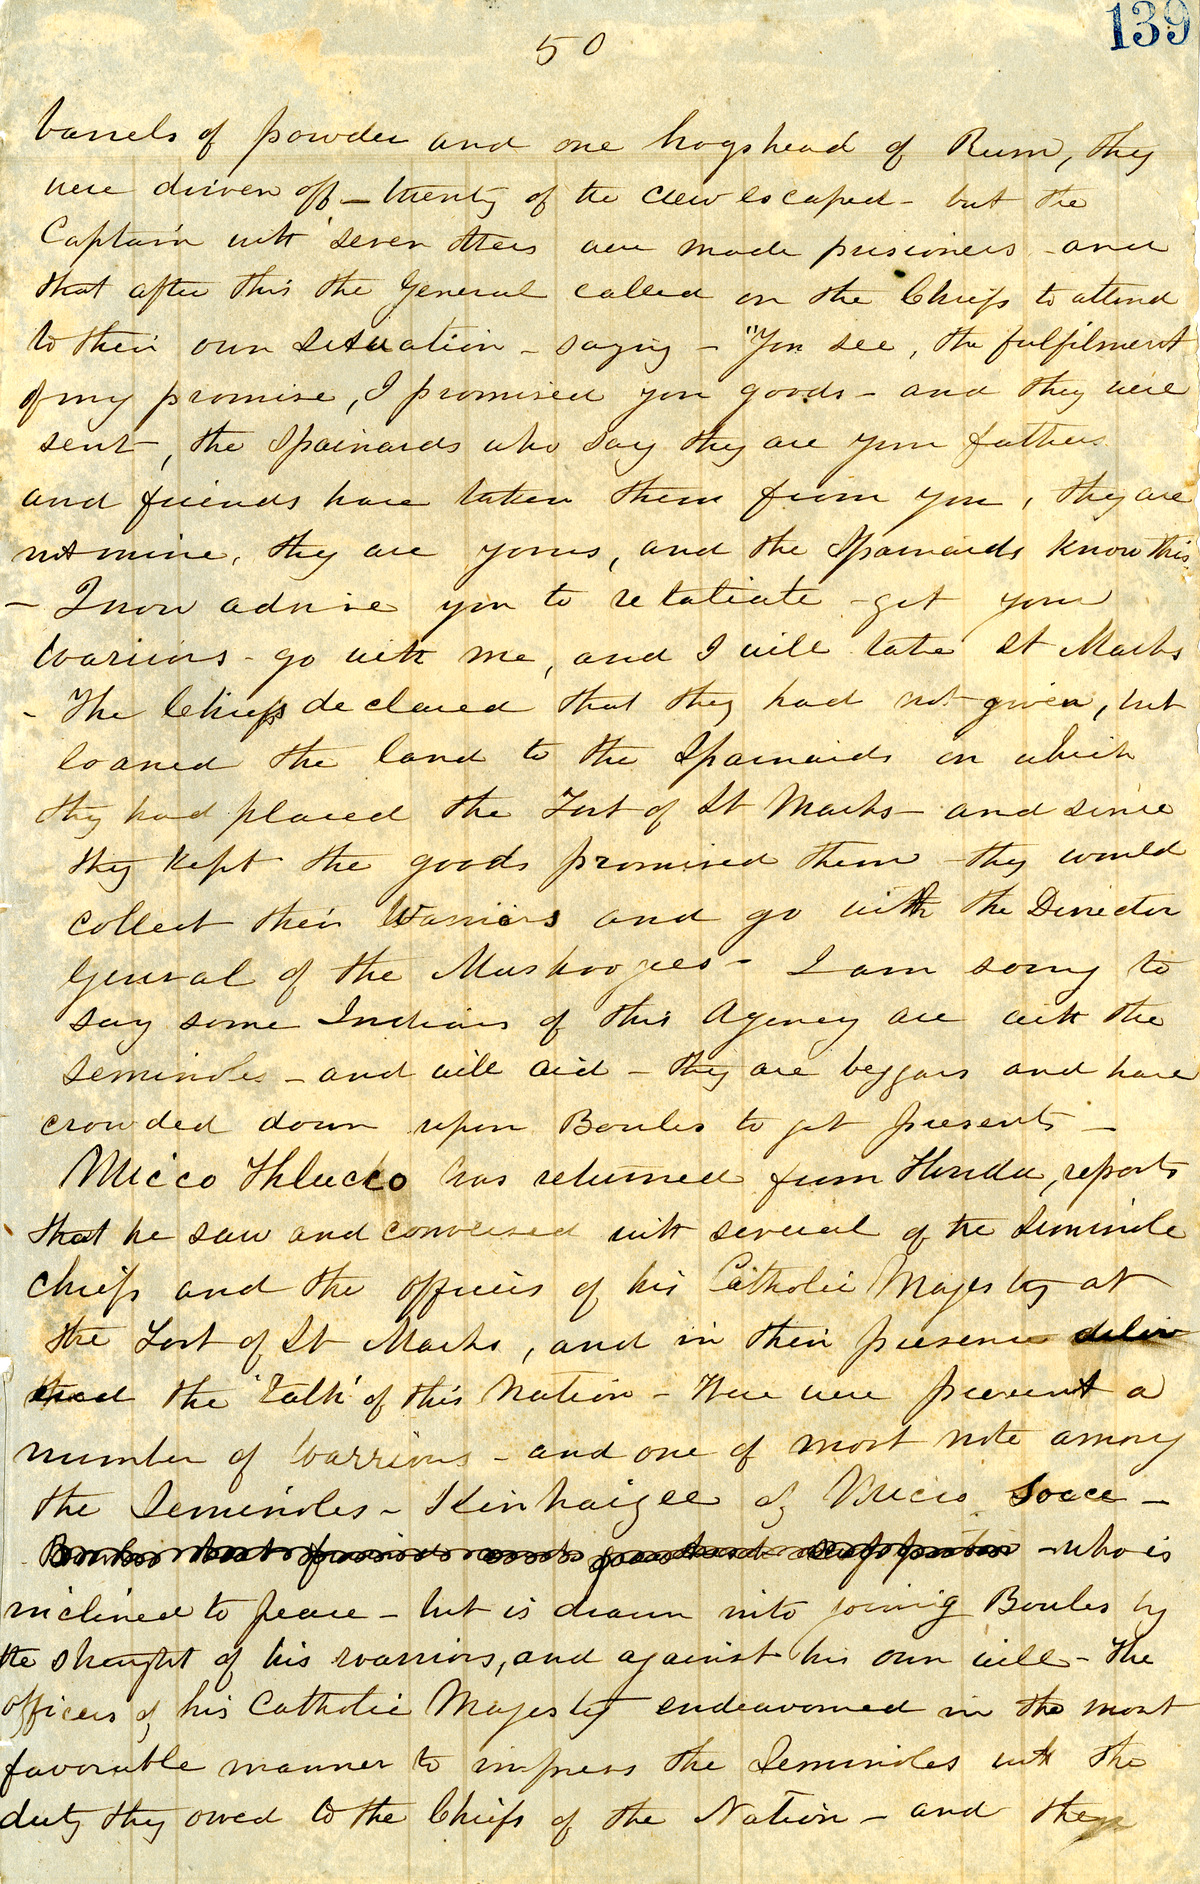 139
50
barrels of powder and one hogshead of Rum, they
were driven off – twenty of the crew escaped – but the
Captain with seven others are made prisoners – and
that after this the General called on the Chiefs to attend
to their own situation – saying – "You see, the fulfilment
of my promise, I promised you goods – and they were
sent, the Spainards who say they are your fathers
and friends have taken them from you, they are
not mine, they are yours, and the Spainards know this,
– I now advise you to retaliate – get your
Warriors – go with me, and I will take St Marks
– The Chiefs declared that they had not given, but
loaned the land to the Spainards on which
they had placed the Fort of St Marks – and since
they kept the goods promised them – they would
collect their Warriors and go with the Director
General of the Muskogees – I am sorry to
say some Indians of this Agency are with the
Seminoles – and will aid – they are beggars and have
crowded down upon Bowles to get presents –
Micco Thlucco has returned from Florida, reports
that he saw and conversed with several of the Seminole
Chiefs and the officers of his Catholic Majesty at
the Fort of St Marks, and in their presence deliv
ered the 'Talk' of this Nation – There were present a
number of Warriors – and one of most note among
the Seminoles – Kinhaigee of Micco Socce –
– who is
inclined to peace – but is drawn into joining Bowles by
the strenght of his warriors, and against his own will – The
officers of his Catholic Majesty endeavoured in the most
favorable manner to impress the Seminoles with the
duty they owed to the Chiefs of the Nation – and they